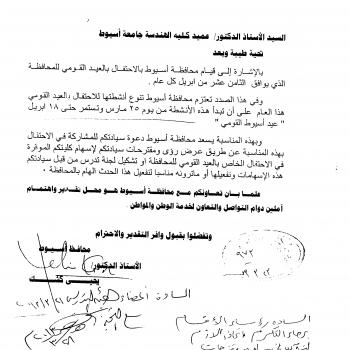 السيد الأستاذ الدكتور/ عميد كليه الهندسة جامعة أسيوط
تحية طيبة وبعد
بالإشارة إلى قيام محافظة أسيوط بالاحتفال بالعيد القومي للمحافظة
الذي يوافق الثامن عشر من ابريل كل عام .
وفي هذا الصدد تعتزم محافظة أسيوط تنوع أنشطتها للاحتفال بالعيد القومي
هذا العام على أن تبدأ هذه الأنشطة من يوم ٢٥ مارس وتستمر حتى ١٨ ابريل
" عيد أسيوط القومي "
وبهذه المناسبة يسعد محافظة أسيوط دعوة سيادتكم للمشاركة في الاحتفال
بهذه المناسبة عن طريق عرض رؤى ومقترحات سيادتكم لإسهام كليتكم الموقرة
في الاحتفال الخاص بالعيد القومي للمحافظة أو تشكيل لجنة تدرس من قبل سيادتكم
هذه الإسهامات وتفعيلها أو ماترونه مناسبا لتفعيل هذا الحدث الهام بالمحافظة .
علما بان تعاونكم مع محافظة أسيوط هو محل تقدير واهتمام
آملين دوام التواصل والتعاون لخدمة الوطن والمواطن
وتفضلوا بقبول وافر التقدير والاحترام
محافظ أسيوط
الأستاذ الدكتور
يحيى كشك
السادة أعضاء هيئة التدريس
السادة رؤساء الأقسام